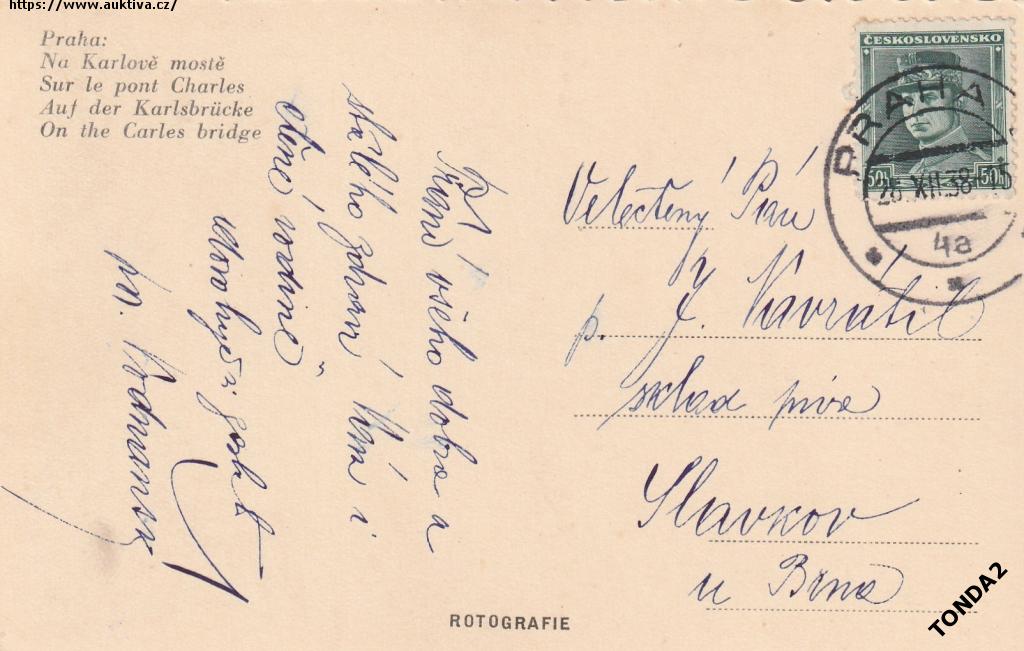 https://www.auktiva.cz/
Praha:
Na Karlově mostě
Sur le pont Charles
Auf der Karlsbrücke
On the Carles bridge
ČESKOSLOVENSKO
50h
50h
PRAHA
XII.38
4a
Velectěný Pán
p. J. Navrátil
sklad piva
Slavkov
u Brna
Přání všeho dobra a
stálého zdraví Vám i
ctěné rodině
ROTOGRAFIE
TONDA2